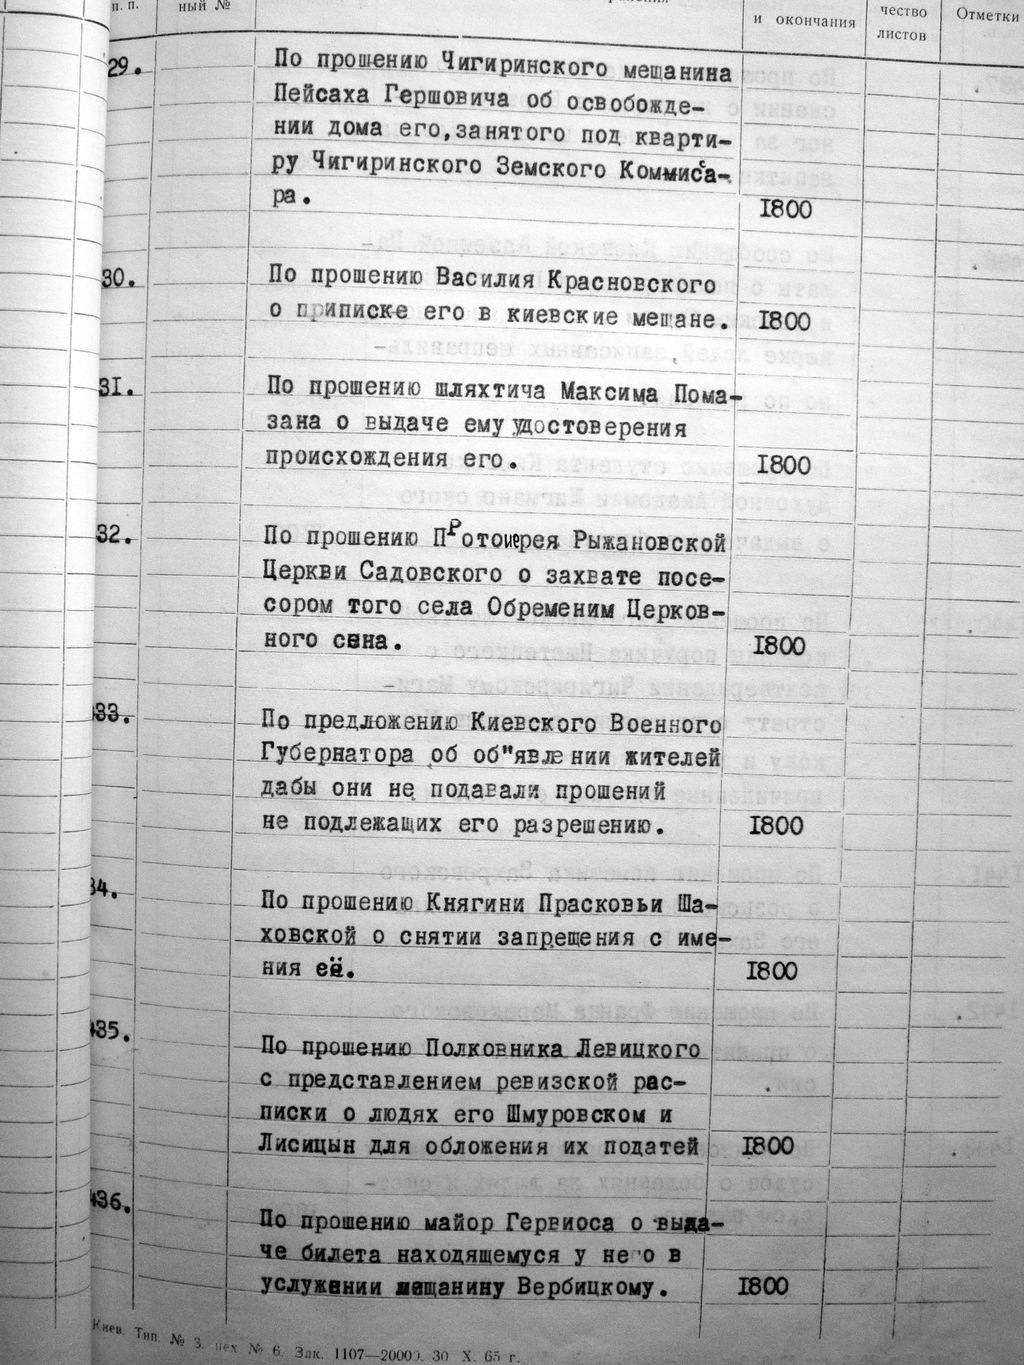 п. п.
ный №
и окончания
чество
листов
Отметки
29.
По прошению Чигиринского мещанина
Пейсаха Гершовича об освобожде-
нии дома его,занятого под кварти-
ру Чигиринского Земского Коммиса-
ра.
1800
30.
По прошению Василия Красновского
о приписке его в киевские мещане.
1800
31.
По прошению шляхтича Максима Пома-
зана о выдаче ему удостоверения
происхождения его.
1800
32.
По прошению Протоиерея Рыжановской
Церкви Садовского о захвате посе-
сором того села Обременим Церков-
ного сена.
1800
33.
По предложению Киевского Военного
Губернатора об об"явлении жителей
дабы они не подавали прошений
не подлежащих его разрешению.
1800
34.
По прошению Княгини Прасковьи Ша-
ховской о снятии запрещения с име-
ния её.
1800
435.
По прошению Полковника Левицкого
с представлением ревизской рас-
писки о людях его Шмуровском и
Лисицын для обложения их податей
1800
436.
По прошению майор Гервиоса о выда-
че билета находящемуся у него в
услужении мещанину Вербицкому.
1800
Киев. Тип. № 3. цех № 6. Зак. 1107—20000. 30 X. 65 г.